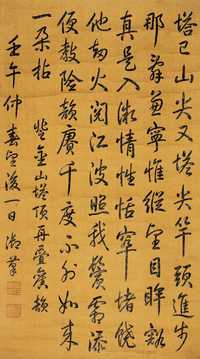 塔已山尖又塔尖竿頭進步
那辭兼寧惟縱望目眸豁
真是入澂情性恬窣堵饒
他劫火閱江波照我鬢霜添
便教險韻賡千度不外如来
一朵拈
登金山塔頂再疊舊韻
壬午仲春望後一日御筆